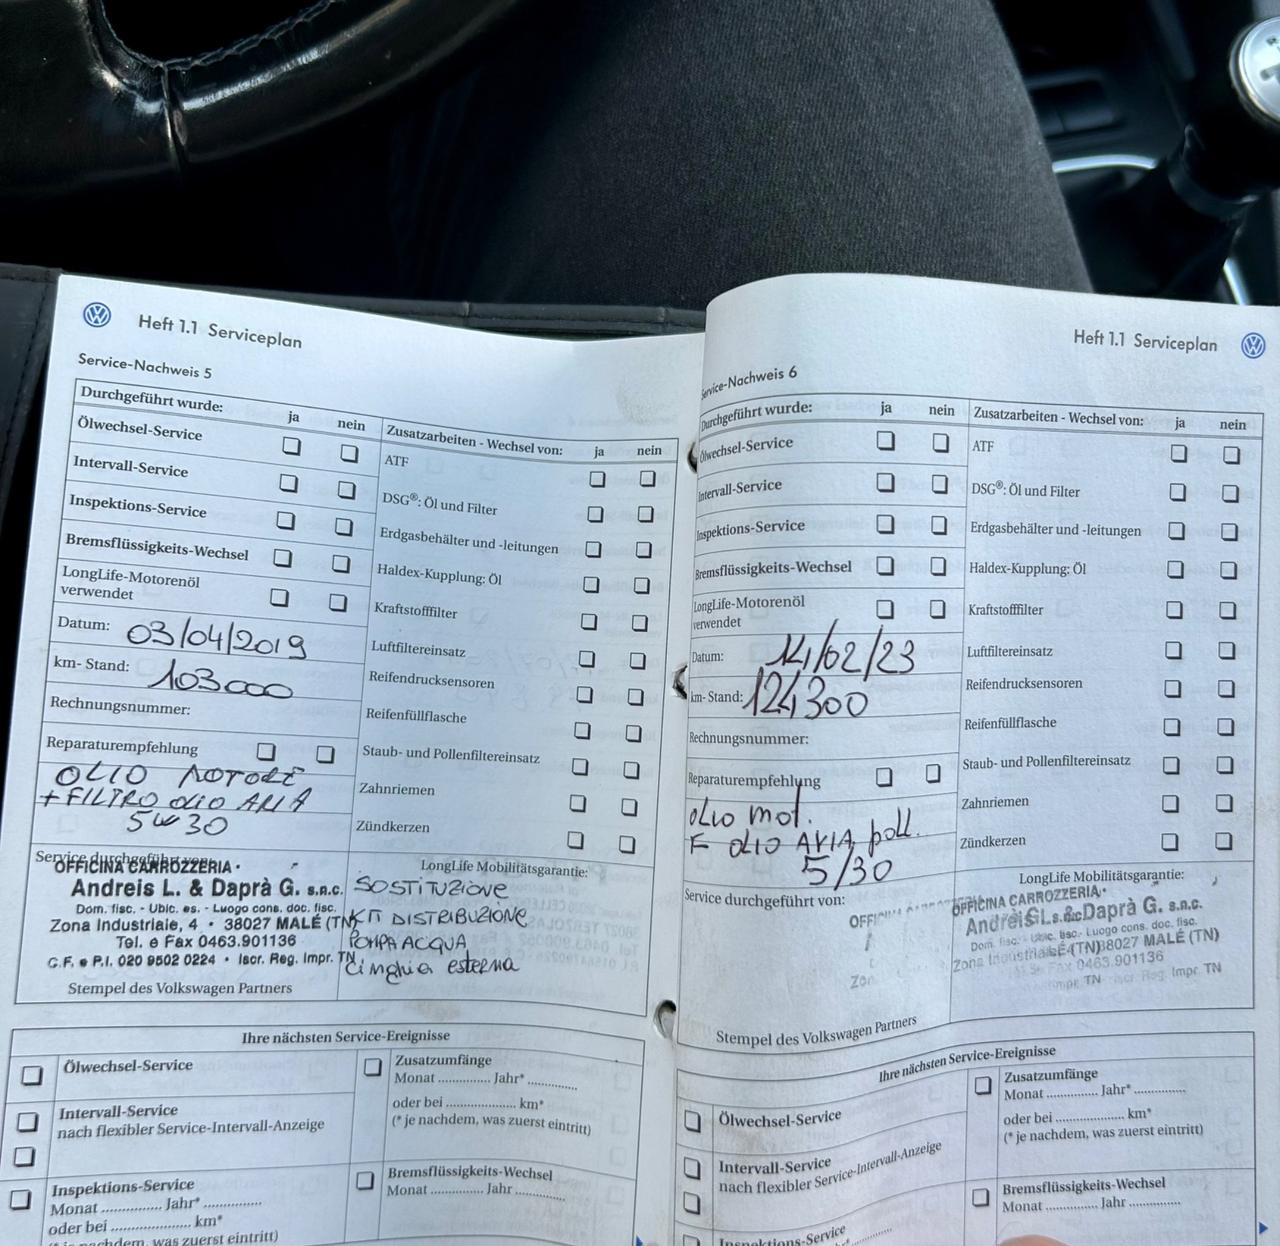 Heft 1.1 Serviceplan
Service-Nachweis 5
Durchgeführt wurde: ja nein
Ölwechsel-Service
Intervall-Service
Inspektions-Service
Bremsflüssigkeits-Wechsel
LongLife-Motorenöl
verwendet
Datum: 03/04/2019
km- Stand: 103000
Rechnungsnummer:
Reparaturempfehlung
OLIO MOTORE
+ FILTRO OLIO ARIA
5W30
Zusatzarbeiten - Wechsel von: ja nein
ATF
DSG®: Öl und Filter
Erdgasbehälter und -leitungen
Haldex-Kupplung: Öl
Kraftstofffilter
Luftfiltereinsatz
Reifendrucksensoren
Reifenfüllflasche
Staub- und Pollenfiltereinsatz
Zahnriemen
Zündkerzen
Service durchgeführt von:
OFFICINA CARROZZERIA
Andreis L. & Daprà G. s.n.c.
Dom. fisc. - Ubic. es. - Luogo cons. doc. fisc.
Zona Industriale, 4 • 38027 MALÉ (TN)
Tel. e Fax 0463.901136
C.F. e P.I. 020 9502 0224 • Iscr. Reg. Impr. TN
Stempel des Volkswagen Partners
LongLife Mobilitätsgarantie:
SOSTITUZIONE
KIT DISTRIBUZIONE
POMPA ACQUA
Cinghia esterna
Ihre nächsten Service-Ereignisse
Ölwechsel-Service
Intervall-Service
nach flexibler Service-Intervall-Anzeige
Inspektions-Service
Monat .............. Jahr* ..............
oder bei .................... km*
(* je nachdem, was zuerst eintritt)
Zusatzumfänge
Monat .............. Jahr* .............
oder bei .................... km*
(* je nachdem, was zuerst eintritt)
Bremsflüssigkeits-Wechsel
Monat ........... Jahr ............
Heft 1.1 Serviceplan
Service-Nachweis 6
Durchgeführt wurde: ja nein
Ölwechsel-Service
Intervall-Service
Inspektions-Service
Bremsflüssigkeits-Wechsel
LongLife-Motorenöl
verwendet
Datum: 14/02/23
km- Stand: 124300
Rechnungsnummer:
Reparaturempfehlung
olio mot.
F OLIO ARIA poll.
5/30
Zusatzarbeiten - Wechsel von: ja nein
ATF
DSG®: Öl und Filter
Erdgasbehälter und -leitungen
Haldex-Kupplung: Öl
Kraftstofffilter
Luftfiltereinsatz
Reifendrucksensoren
Reifenfüllflasche
Staub- und Pollenfiltereinsatz
Zahnriemen
Zündkerzen
Service durchgeführt von:
Stempel des Volkswagen Partners
LongLife Mobilitätsgarantie:
OFFICINA CARROZZERIA
Daprà G. s.n.c.
Luogo cons. doc. fisc.
38027 MALÉ (TN)
Fax 0463.901136
Reg. Impr. TN
Ihre nächsten Service-Ereignisse
Ölwechsel-Service
Intervall-Service
nach flexibler Service-Intervall-Anzeige
Inspektions-Service
Zusatzumfänge
Monat .............. Jahr* .............
oder bei .................... km*
(* je nachdem, was zuerst eintritt)
Bremsflüssigkeits-Wechsel
Monat ........... Jahr ............